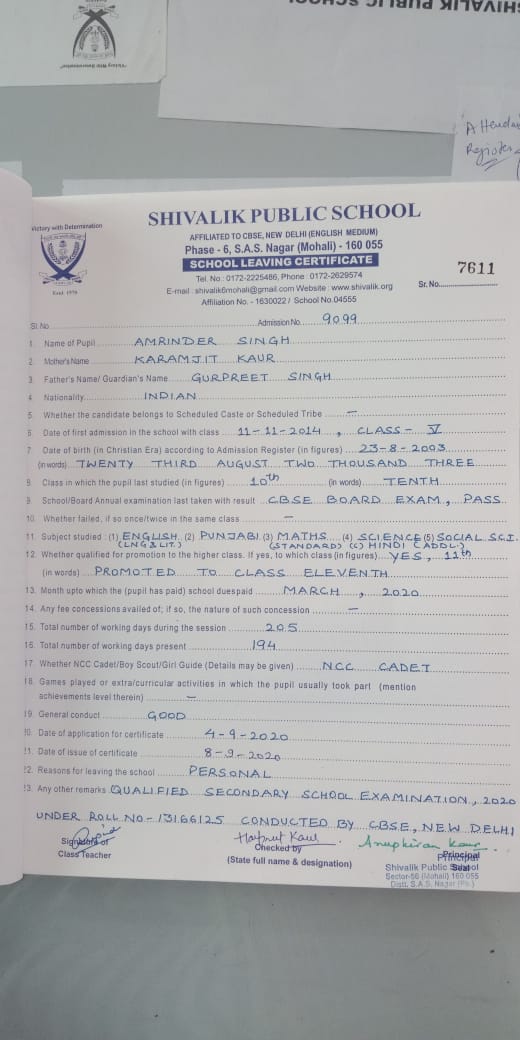 SHIVALIK PUBLIC SCHOOL
"Victory With Determination"
Attendan
Register
Victory with Determination
Estd. 1970
SHIVALIK PUBLIC SCHOOL
AFFILIATED TO CBSE, NEW DELHI (ENGLISH MEDIUM)
Phase - 6, S.A.S. Nagar (Mohali) - 160 055
SCHOOL LEAVING CERTIFICATE
Tel. No.: 0172-2225486, Phone : 0172-2629574
E-mail : shivalik6mohali@gmail.com Website : www.shivalik.org
Affiliation No. - 1630022 / School No.04555
Sr. No. 7611
Sl. No. Admission No. 9099
1. Name of Pupil AMRINDER SINGH
2. Mother's Name KARAMJIT KAUR
3. Father's Name/ Guardian's Name GURPREET SINGH
4. Nationality INDIAN
5. Whether the candidate belongs to Scheduled Caste or Scheduled Tribe —
6. Date of first admission in the school with class 11-11-2014, CLASS - V
7. Date of birth (in Christian Era) according to Admission Register (in figures) 23-8-2003
(in words) TWENTY THIRD AUGUST TWO THOUSAND THREE
8. Class in which the pupil last studied (in figures) 10th (in words) TENTH
9. School/Board Annual examination last taken with result CBSE BOARD EXAM, PASS
10. Whether failed, if so once/twice in the same class —
11. Subject studied : (1) ENGLISH (2) PUNJABI (3) MATHS (4) SCIENCE (5) SOCIAL SCI.
(LNG & LIT.) (STANDARD) (6) HINDI (ADDL.)
12. Whether qualified for promotion to the higher class. If yes, to which class (in figures) YES, 11th
(in words) PROMOTED TO CLASS ELEVENTH
13. Month upto which the (pupil has paid) school duespaid MARCH, 2020
14. Any fee concessions availed of; if so, the nature of such concession —
15. Total number of working days during the session 205
16. Total number of working days present 194
17. Whether NCC Cadet/Boy Scout/Girl Guide (Details may be given) NCC CADET
18. Games played or extra/curricular activities in which the pupil usually took part (mention
achievements level therein) —
19. General conduct GOOD
20. Date of application for certificate 4-9-2020
21. Date of issue of certificate 8-9-2020
22. Reasons for leaving the school PERSONAL
23. Any other remarks QUALIFIED SECONDARY SCHOOL EXAMINATION, 2020
UNDER ROLL NO - 13166125 CONDUCTED BY CBSE, NEW DELHI
Harpreet Kaur Anupkiran Kaur
Signature of Checked by Principal
Class Teacher (State full name & designation) Seal
Principal
Shivalik Public School
Sector-56 (Mohali) 160 055
Distt. S.A.S. Nagar (Pb.)